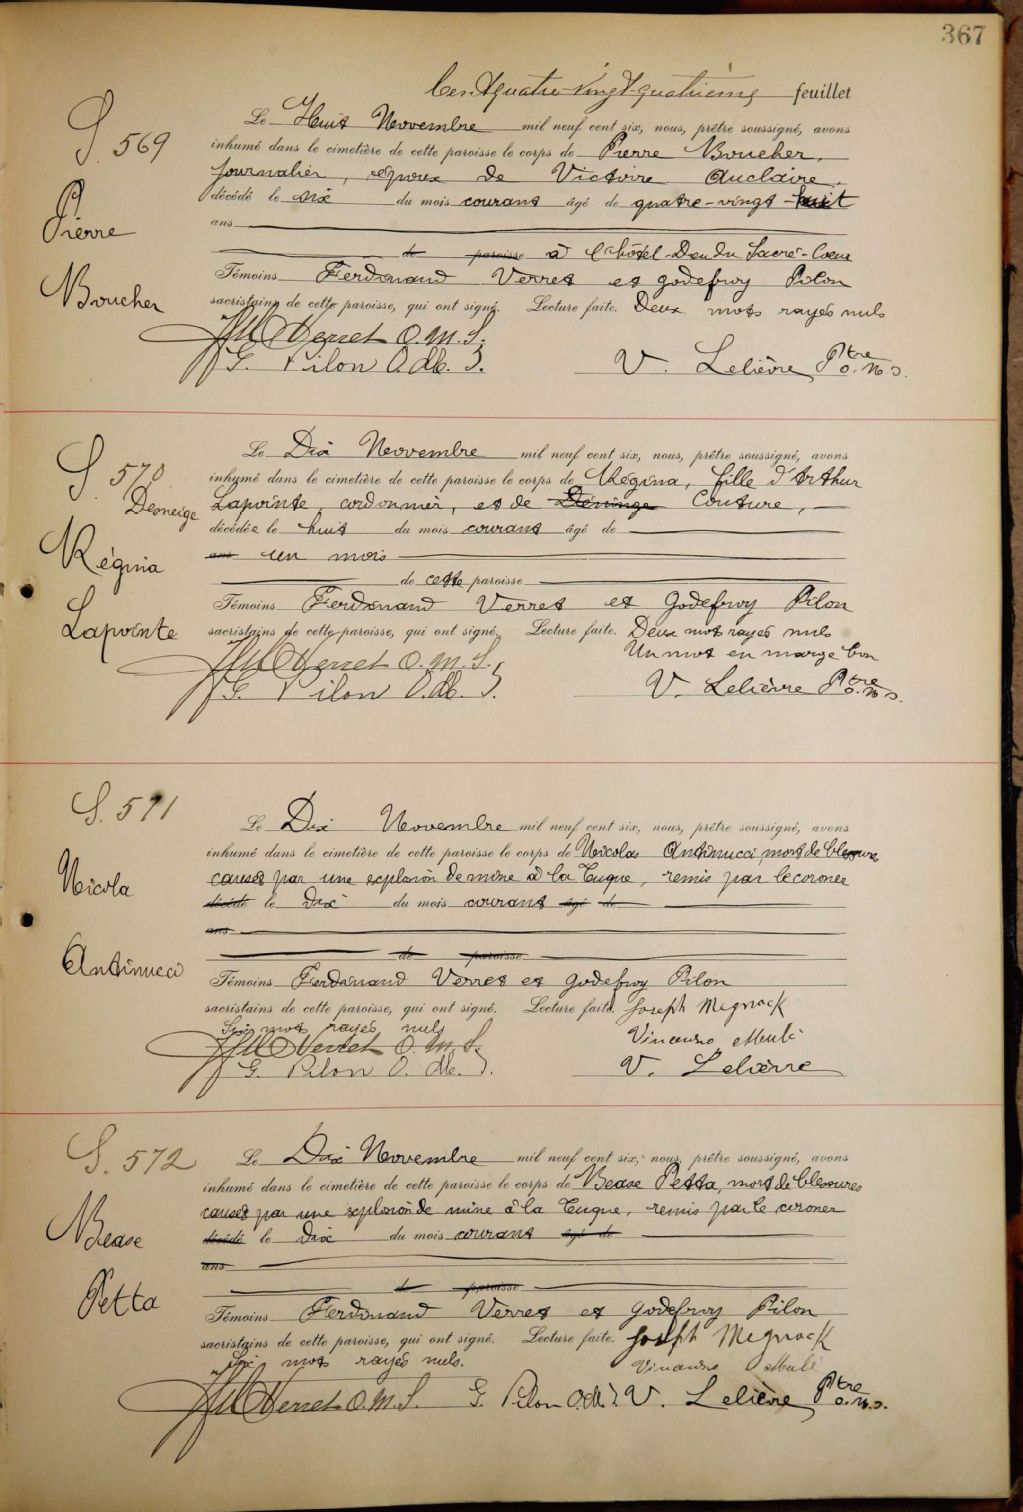 367
Cent quatre-vingt-quatrième feuillet
S. 569
Pierre
Boucher
Le Huit Novembre mil neuf cent six, nous, prêtre soussigné, avons
inhumé dans le cimetière de cette paroisse le corps de Pierre Boucher,
journalier, époux de Victoire Auclaire.
décédé le six du mois courant âgé de quatre-vingt-huit
ans
de paroisse à l'hôtel-Dieu du Sacré-Coeur
Témoins Ferdinand Verret et Godefroy Pilon
sacristains de cette paroisse, qui ont signé. Lecture faite. Deux mots rayés nuls
Verret O.M.I.
G. Pilon O.M.I. V. Lelièvre Ptre O.M.I.
S. 570
Desneige
Régina
Lapointe
Le Dix Novembre mil neuf cent six, nous, prêtre soussigné, avons
inhumé dans le cimetière de cette paroisse le corps de Régina, fille d'Arthur
Lapointe, cordonnier, et de Couture,
décédée le huit du mois courant âgé de
ans un mois
de cette paroisse
Témoins Ferdinand Verret et Godefroy Pilon
sacristains de cette paroisse, qui ont signé. Lecture faite. Deux mots rayés nuls
Un mot en marge bon
Verret O.M.I.
G. Pilon O.M.I. V. Lelièvre Ptre O.M.I.
S. 571
Nicola
Antinucci
Le Dix Novembre mil neuf cent six, nous, prêtre soussigné, avons
inhumé dans le cimetière de cette paroisse le corps de Nicolas Antinucci mort de blessures
causés par une explosion de mine à la Tuque, remis par le coroner
décédé le Dix du mois courant âgé de
ans
de paroisse
Témoins Ferdinand Verret et Godefroy Pilon
sacristains de cette paroisse, qui ont signé. Lecture faite. Joseph Megnack
Six mots rayés nuls
Verret O.M.I.
G. Pilon O.M.I. V. Lelièvre
S. 572
Bease
Petta
Le Dix Novembre mil neuf cent six, nous, prêtre soussigné, avons
inhumé dans le cimetière de cette paroisse le corps de Bease Petta, mort de blessures
causés par une explosion de mine à la Tuque, remis par le coroner
décédé le Dix du mois courant âgé de
ans
de paroisse
Témoins Ferdinand Verret et Godefroy Pilon
sacristains de cette paroisse, qui ont signé. Lecture faite. Joseph Megnack
Six mots rayés nuls.
Verret O.M.I. G. Pilon O.M.I. V. Lelièvre Ptre O.M.I.